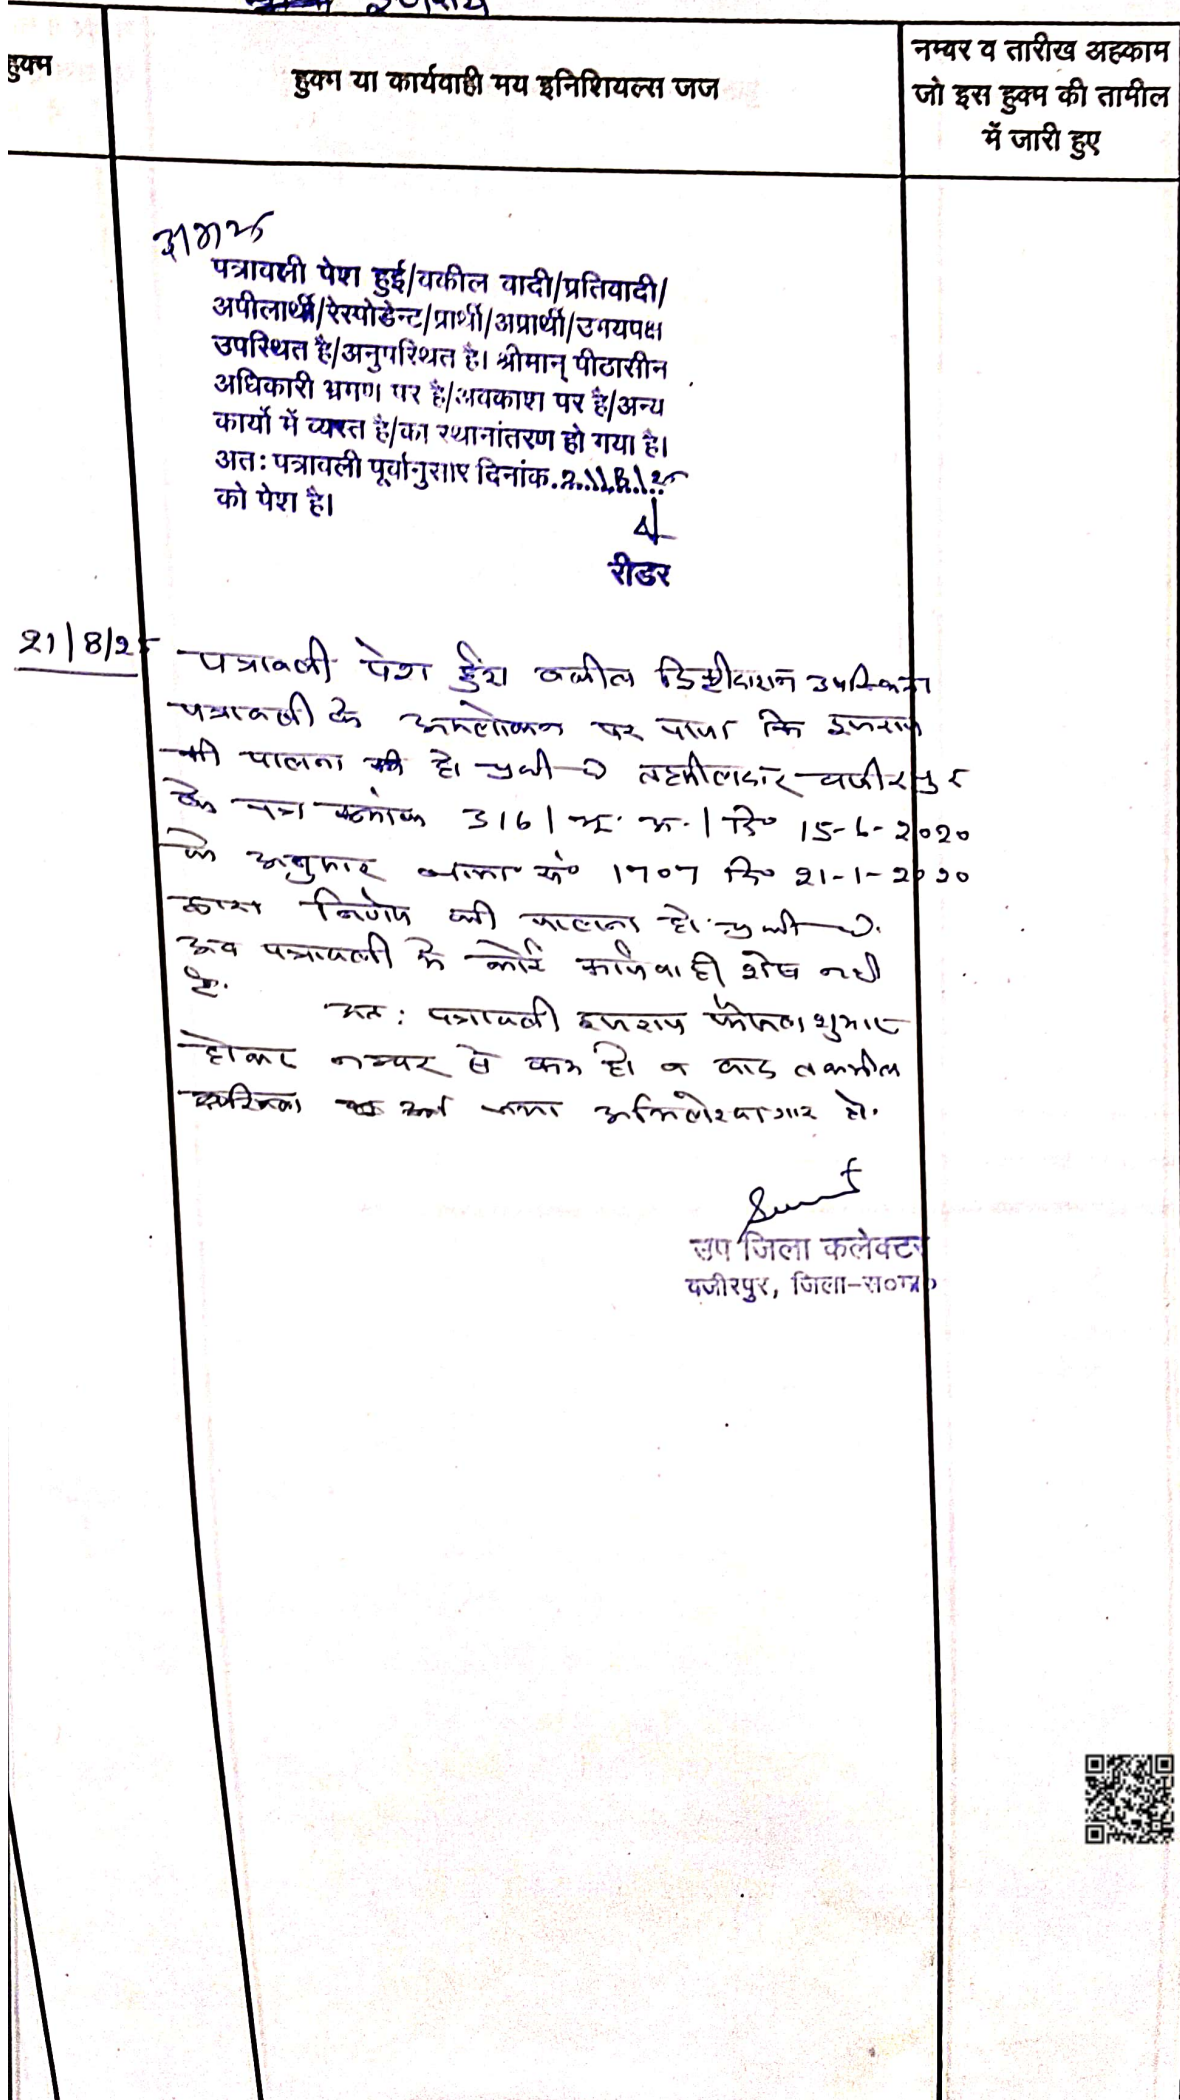 इजराय
हुक्म
हुक्म या कार्यवाही मय इनिशियल्स जज
नम्बर व तारीख अहकाम
जो इस हुक्म की तामील
में जारी हुए
पत्रावली पेश हुई/वकील वादी/प्रतिवादी/
अपीलार्थी/रेस्पोडेन्ट/प्रार्थी/अप्रार्थी/उभयपक्ष
उपस्थित है/अनुपस्थित है। श्रीमान् पीठासीन
अधिकारी भ्रमण पर है/अवकाश पर है/अन्य
कार्यो में व्यस्त है/का स्थानांतरण हो गया है।
अतः पत्रावली पूर्वानुसार दिनांक 21/8/25
को पेश है।
रीडर
21/8/25
पत्रावली पेश हुई। वकील डिक्रीदारान उपस्थित।
पत्रावली के अवलोकन पर पाया कि इजराय
की पालना हो चुकी है तहसीलदार वजीरपुर
के पत्र क्रमांक 316/भू.अ./दि० 15-6-2020
के अनुसार नामा सं० 1707 दि० 21-1-2020
द्वारा निर्णय की पालना हो चुकी है.
अब पत्रावली में कोई कार्यवाही शेष नही
है.
अतः पत्रावली इजराय फैसल शुमार
होकर नम्बर से कम हो व बाद तकमील
जमा अभिलेखागार हो.
उप जिला कलेक्टर
वजीरपुर, जिला-स०मा०